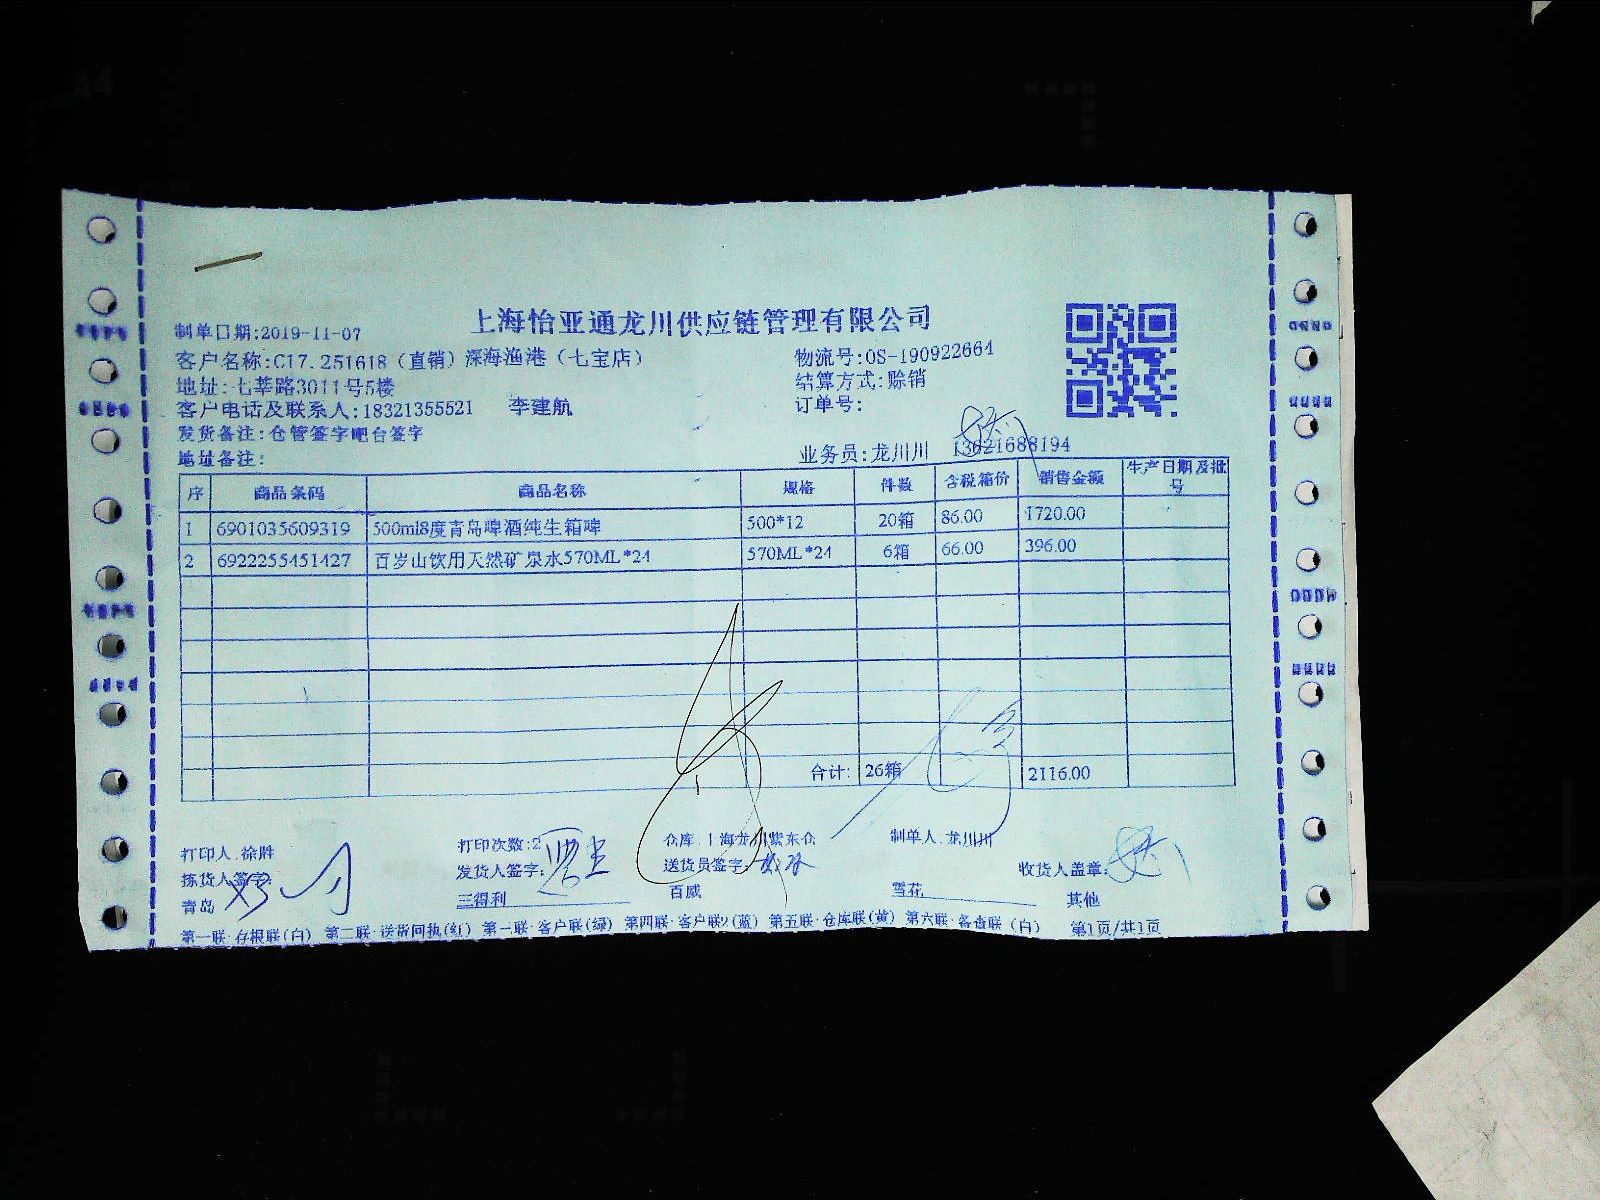 上海怡亚通龙川供应链管理有限公司
制单日期:2019-11-07
客户名称:C17.251618（直销）深海渔港（七宝店） 物流号:OS-190922664
地址:七莘路3011号5楼 结算方式:赊销
客户电话及联系人:18321355521 李建航 订单号:
发货备注:仓管签字吧台签字
地址备注: 业务员:龙川川 13621688194
序 商品条码 商品名称 规格 件数 含税箱价 销售金额 生产日期及批号
1 6901035609319 500ml8度青岛啤酒纯生箱啤 500*12 20箱 86.00 1720.00
2 6922255451427 百岁山饮用天然矿泉水570ML*24 570ML*24 6箱 66.00 396.00
合计: 26箱 2116.00
打印人:徐胜 打印次数:2 仓库:上海龙川紫东仓 制单人:龙川川
拣货人签字: 发货人签字: 送货员签字: 收货人盖章:
青岛 三得利 百威 雪花 其他
第一联:存根联(白) 第二联:送货回执(红) 第三联:客户联(绿) 第四联:客户联2(蓝) 第五联:仓库联(黄) 第六联:备查联(白) 第1页/共1页